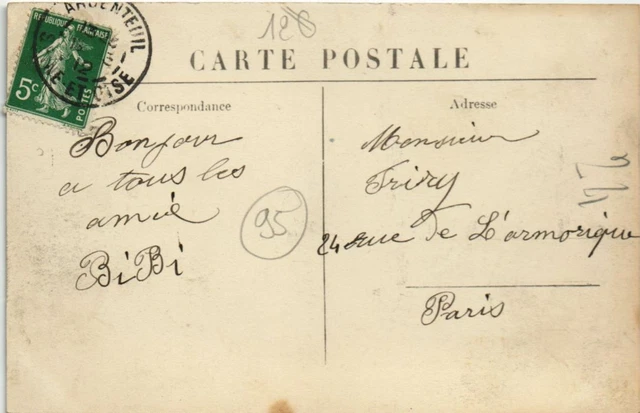 ARGENTEUIL
SEINE-ET-OISE
REPUBLIQUE FRANÇAISE
5c
POSTES
128
CARTE POSTALE
Correspondance
Adresse
Bonjour
a tous les
amie
BiBi
95
Monsieur
24 rue de L'armorique
Paris